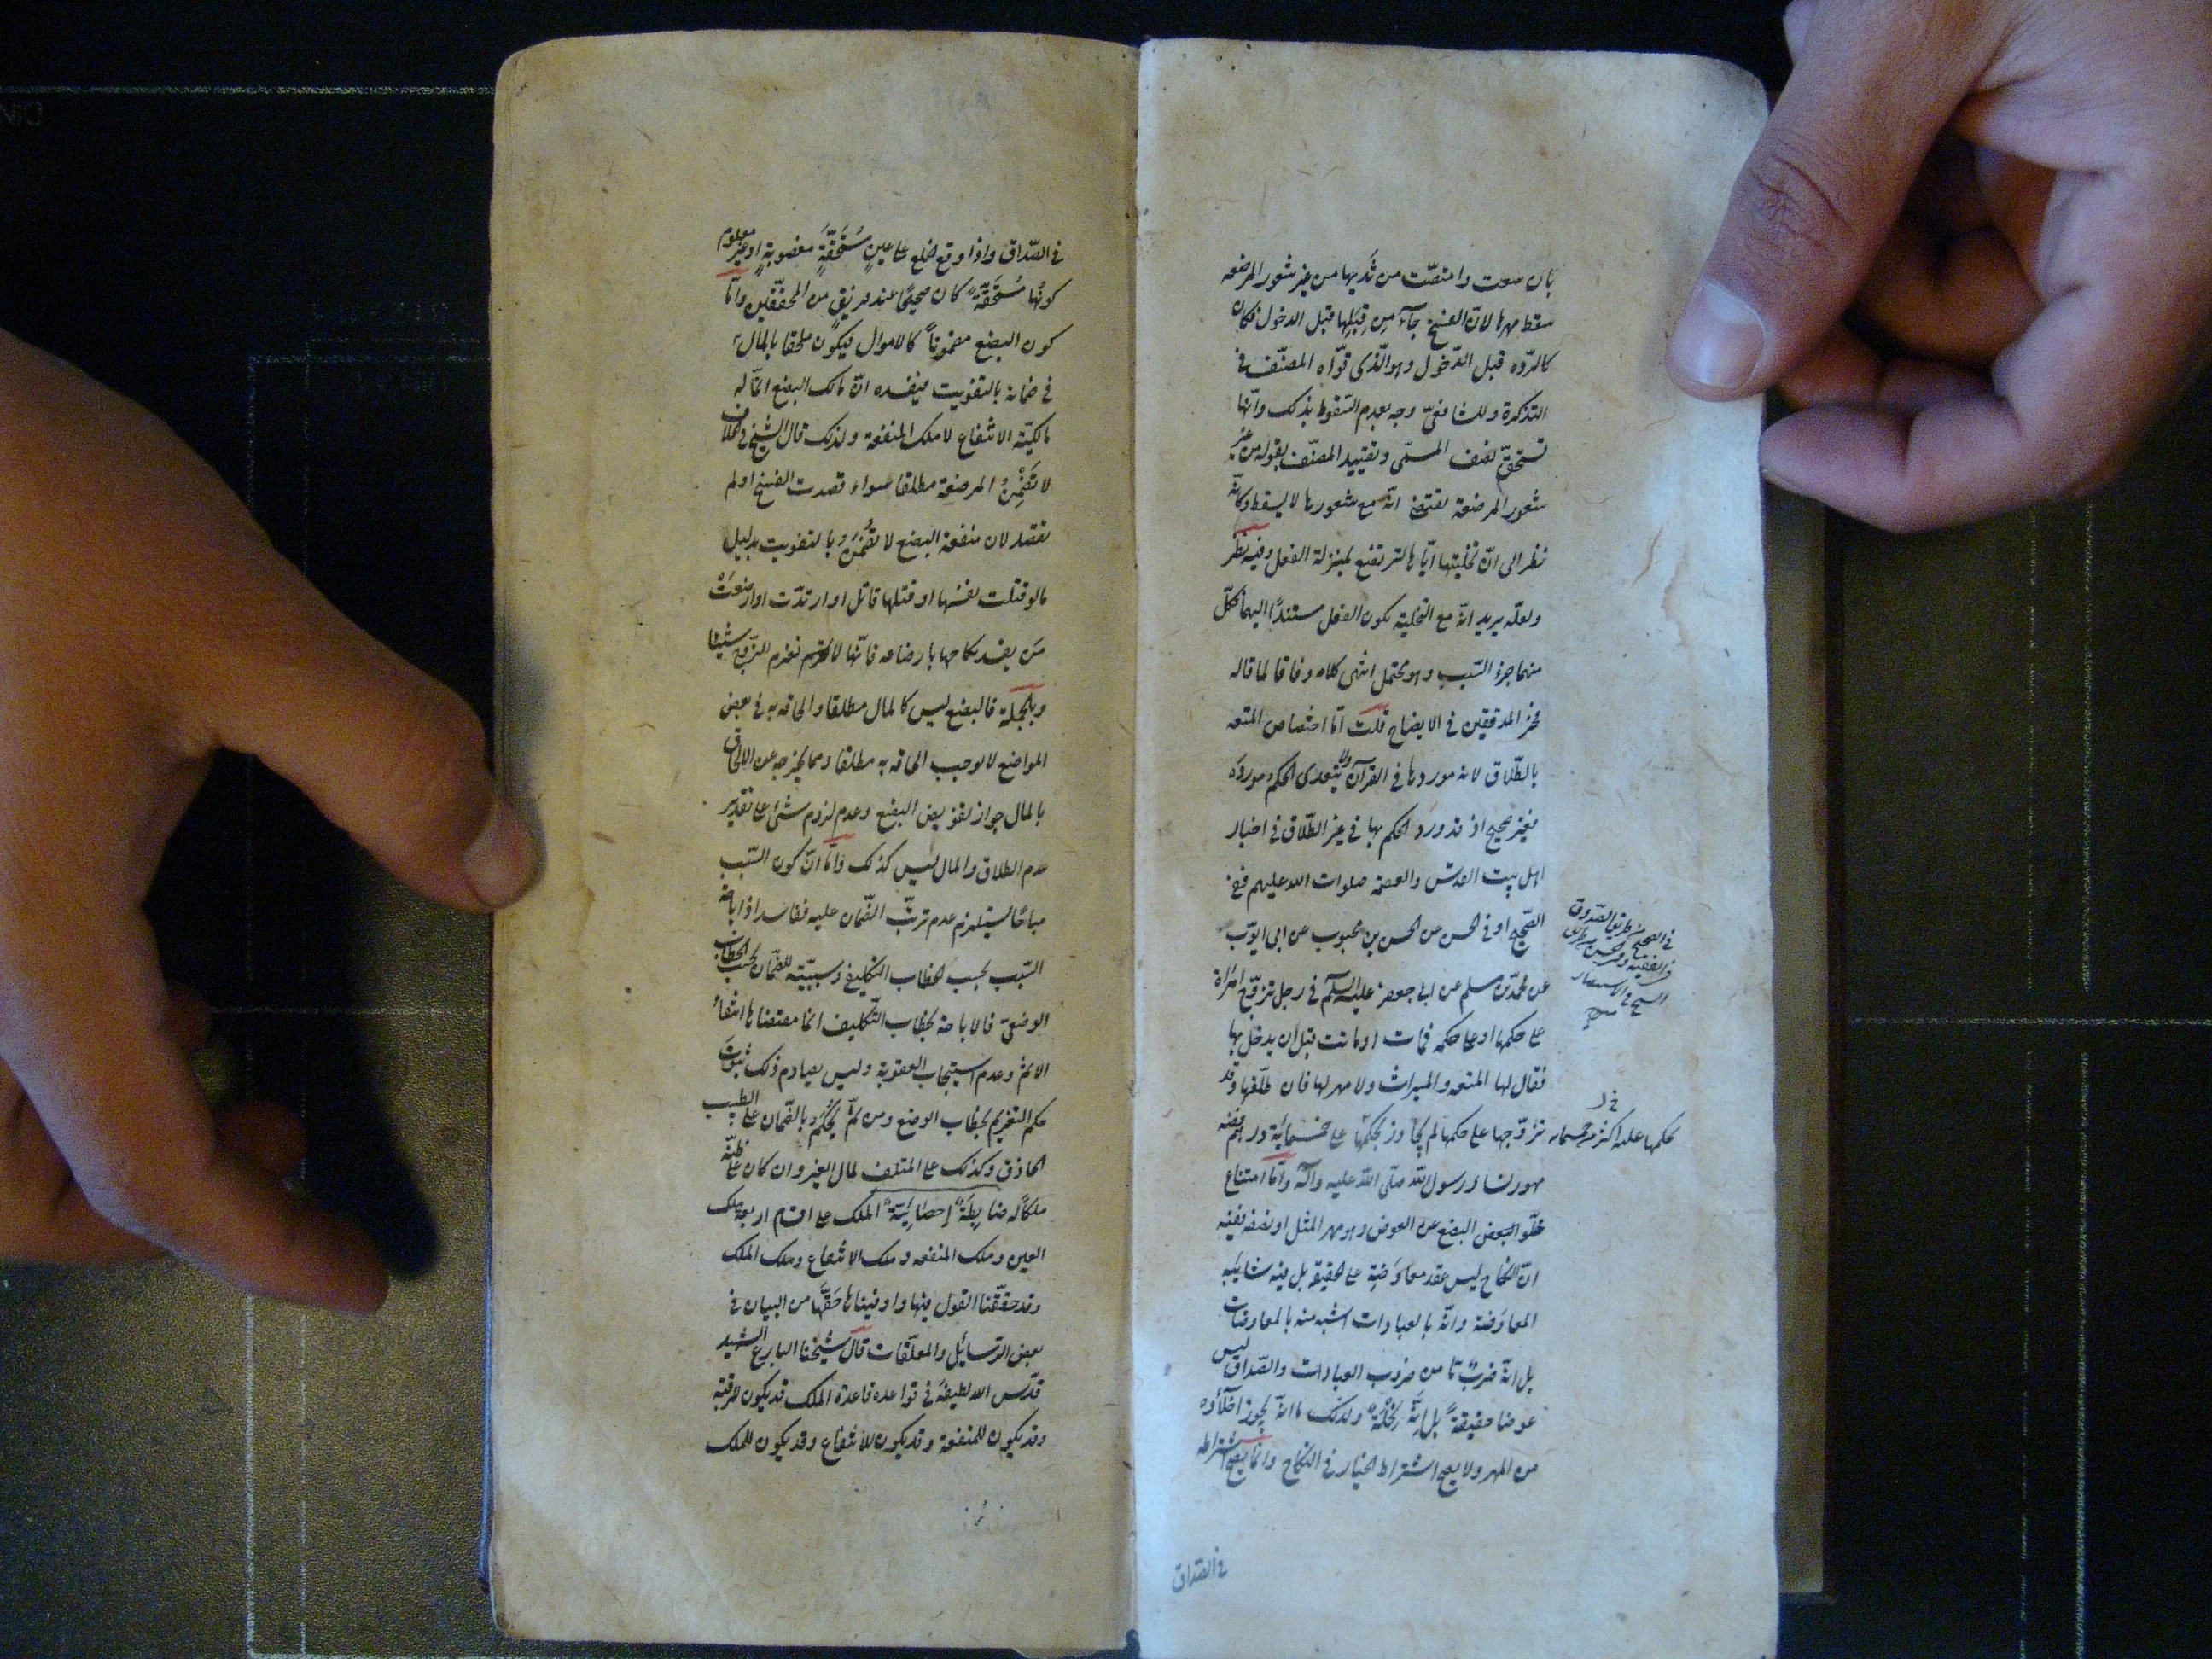 بان سعت وامتصّت من ثديها من غير شعور المرضعه
سقط مهرها لانّ الفسخ جآء من قِبَلِها قبل الدخول فكان
كالردّه قبل الدّخول وهو الّذى قوّاه المصنّف فى
التذكرة وللشافعىّ وجه بعدم السّقوط بذلك وانّها
تستحقّ نصف المسمّى وتقييد المصنّف بقوله من غير
شعور المرضعة يقتضى انّه مع شعورها لا يسقط وكانّه
نظر الى انّ تخليتها ايّاها لترتضع بمنزلة الفعل وفيه نظر
ولعلّه يريد انّه مع التخلية يكون الفعل مستندًا اليهما فكلّ
منهما جزء السّبب وهو محتمل انتهى كلامه وفاقا لما قاله
فخر المدققين فى الايضاح قلت امّا اختصاص المتعه
بالطّلاق لانه موردها فى القرآن ولا يتعدى الحكم مورده
فغير صحيح اذ قد ورد الحكم بها فى غير الطّلاق فى اخبار
اهل بيت القدس والعصمة صلوات الله عليهم ففى
الصّحيح او فى الحسن عن الحسن بن محبوب عن ابى ايّوب
عن محمّد بن مسلم عن ابى جعفر عليه السّلام فى رجل تزوّج امرأة
على حكمها او على حكمه فمات او ماتت قبل ان يدخل بها
فقال لها المتعه والميراث ولا مهر لها فان طلّقها وقد
تزوّجها على حكمها لم يجاوز بحكمها على خمسمائة درهم فضه
مهور نساء رسول الله صلّى الله عليه وآله وامّا امتناع
خلّو البضع عن العوض وهو مهر المثل او نصفه ففيه
انّ النكاح ليس عقد معاوَضةٍ على الحقيقة بل فيه شايبه
المعاوَضة وانّه بالعبادات اشبه منه بالمعاوضات
بل انّه ضربٌ مّا من ضروب العبادات والصّداق ليس
عوضا حقيقةً بل انّه نِحْلَةٌ ولذلك ما انّه يجوز اخلاؤه
من المهر ولا يصح اشتراط الخيار فى النكاح وانّما يصح اشتراطه
فى الصّداق
فى الصحيح من طريق الصّدوق
فى الفقيه وفى الحسن من طريق
الشيخ فى الاستبصار
بحكمها عليه اكثر من خمسمائه
فى الصّداق واذا وقع الخلع على عينٍ مُستَحَقّةٍ مغصوبةٍ او غير معلوم
كونُها مُستَحَقّةً كان صحيحًا عند فريقٍ من المحقّقين وامّا
كون البضع مضمونًا كالاموال فيكون ملحقا بالمال
فى ضمانه بالتفويت فيفسده انّ مالك البضع انّما له
مالكيّة الانتفاع لا ملك المنفعة ولذلك قال الشيخ فى الخلاف
لا تَضْمَنُ المرضعة مطلقا سواء قصدت الفسخ او لم
تقصد لان منفعة البضع لا تُضْمَنُ بالتفويت بدليل
ما لو قتلت نفسها او قتلها قاتل او ارتدّت او ارضعَتْ
مَن يفسد نكاحها بارضاعه فانّها لا تغرم للزّوج شيئا
وبالجملة فالبضع ليس كالمال مطلقا والحاقه به فى بعض
المواضع لا يوجب الحاقه به مطلقا ومما يخرجه عن الالحاق
بالمال جواز تفويض البضع وعدم لزوم شئ على تقدير
عدم الطلاق والمال ليس كذلك وامّا انّ كون السّبب
مباحًا يستلزم عدم ترتّب الضّمان عليه ففاسد اذ اباحة
السّبب بحسب الخطاب التكليفى وسببيّته للضّمان بحسب الخطاب
الوضعىّ فالاباحة بخطاب التّكليف انما مقتضاها انتفاءُ
الاثم وعدم استيجاب العقوبة وليس يصادم ذلك ثبوتَ
حكم التغريم بخطاب الوضع ومن ثَمّ يُحْكَمُ بالضّمان على الطبيب
الحاذق وكذلك على المتلف لمال الغير وان كان على ظنّه
ملكًا له ضابِطَةٌ إحصَائِيّةٌ الملك على اقسام اربعه ملك
العين وملك المنفعه وملك الانتفاع وملك الملك
وقد حقّقنا القول فيها واوفيناها حَقَّها من البيان فى
بعض الرّسائل والمعلّقات قال شيخنا البارع الشهيد
قدّس الله لطيفَه فى قواعده قاعدة الملك قد يكون للرقبة
وقد يكون للمنفعة وقد يكون للانتفاع وقد يكون للملك